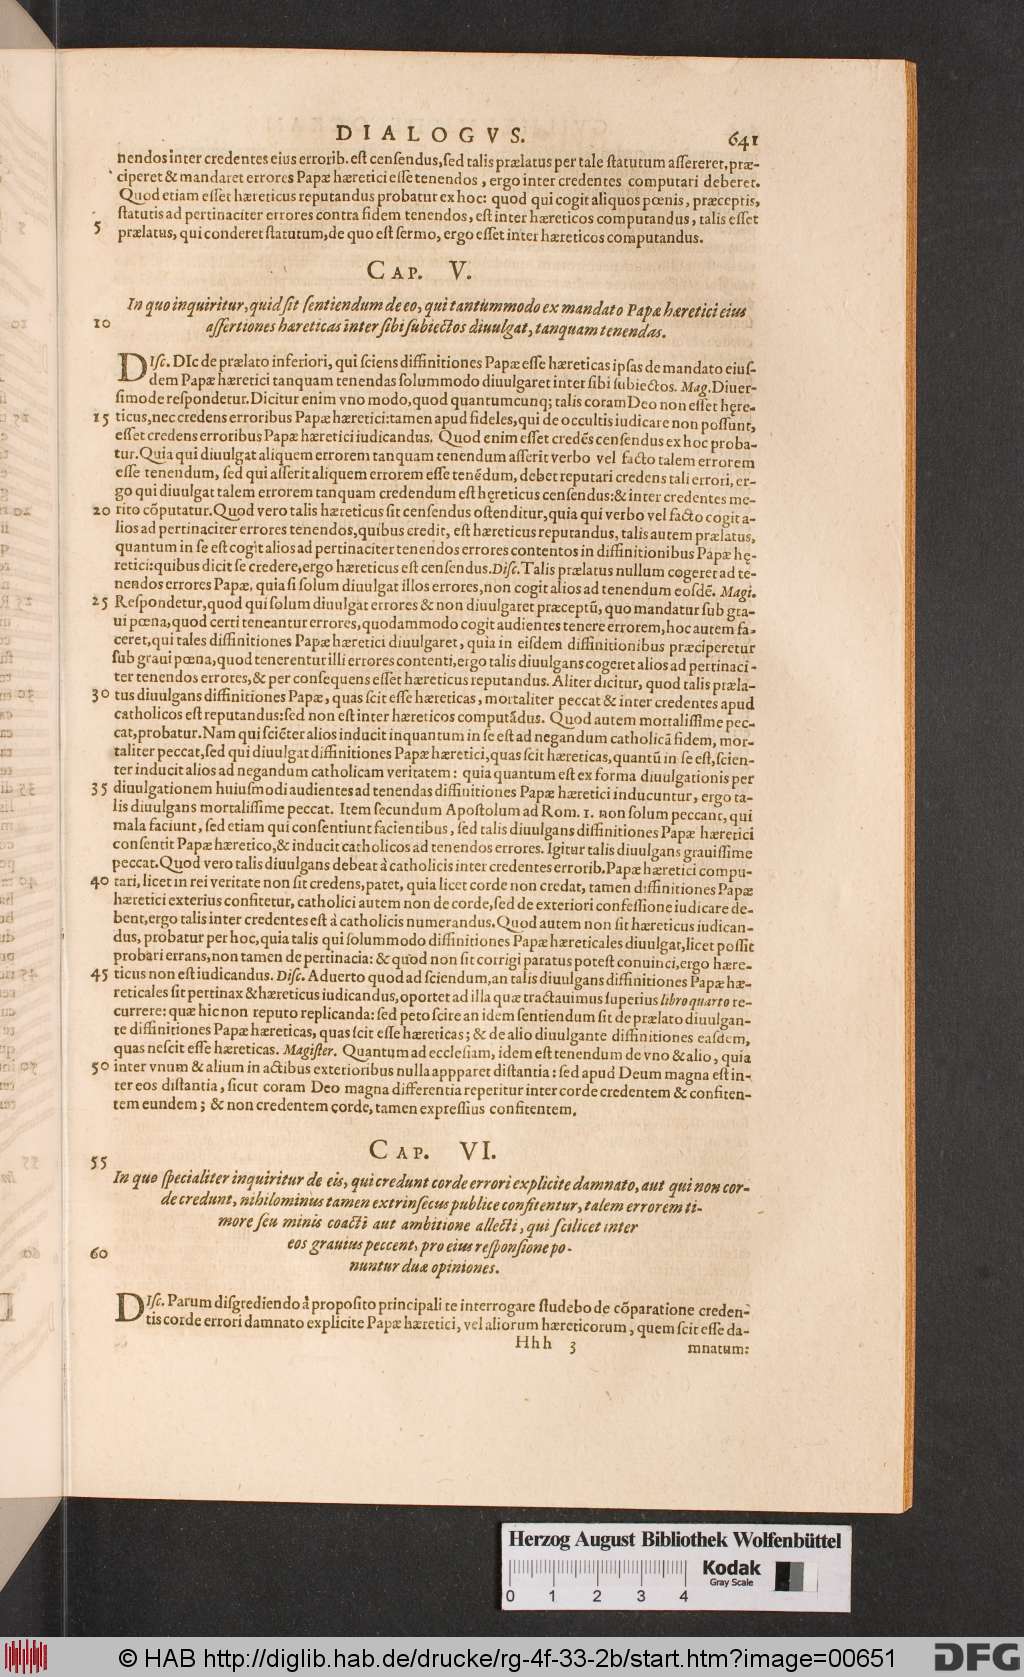 DIALOGVS. 641
nendos inter credentes eius errorib. est censendus, sed talis prælatus per tale statutum assereret, præ-
ciperet & mandaret errores Papæ hæretici esse tenendos, ergo inter credentes computari deberet.
Quod etiam esset hæreticus reputandus probatur ex hoc: quod qui cogit aliquos pœnis, præceptis,
statutis ad pertinaciter errores contra fidem tenendos, est inter hæreticos computandus, talis esset
5 prælatus, qui conderet statutum, de quo est sermo, ergo esset inter hæreticos computandus.
CAP. V.
In quo inquiritur, quid sit sentiendum de eo, qui tantummodo ex mandato Papæ hæretici eius
10 assertiones hæreticas inter sibi subiectos diuulgat, tanquam tenendas.
DIsc. DIc de prælato inferiori, qui sciens diffinitiones Papæ esse hæreticas ipsas de mandato eius-
dem Papæ hæretici tanquam tenendas solummodo diuulgaret inter sibi subiectos. Mag. Diuer-
simode respondetur. Dicitur enim vno modo, quod quantumcunq; talis coram Deo non esset hęre-
15 ticus, nec credens erroribus Papæ hæretici: tamen apud fideles, qui de occultis iudicare non possunt,
esset credens erroribus Papæ hæretici iudicandus. Quod enim esset credẽs censendus ex hoc proba-
tur. Quia qui diuulgat aliquem errorem tanquam tenendum asserit verbo vel facto talem errorem
esse tenendum, sed qui asserit aliquem errorem esse tenẽdum, debet reputari credens tali errori, er-
go qui diuulgat talem errorem tanquam credendum est hęreticus censendus: & inter credentes me-
20 rito cõputatur. Quod vero talis hæreticus sit censendus ostenditur, quia qui verbo vel facto cogit a-
lios ad pertinaciter errores tenendos, quibus credit, est hæreticus reputandus, talis autem prælatus,
quantum in se est cogit alios ad pertinaciter tenendos errores contentos in diffinitionibus Papæ hę-
retici: quibus dicit se credere, ergo hæreticus est censendus. Disc. Talis prælatus nullum cogeret ad te-
nendos errores Papæ, quia si solum diuulgat illos errores, non cogit alios ad tenendum eosdẽ. Magi.
25 Respondetur, quod qui solum diuulgat errores & non diuulgaret præceptũ, quo mandatur sub gra-
ui pœna, quod certi teneantur errores, quodammodo cogit audientes tenere errorem, hoc autem fa-
ceret, qui tales diffinitiones Papæ hæretici diuulgaret, quia in eisdem diffinitionibus præciperetur
sub graui pœna, quod tenerentur illi errores contenti, ergo talis diuulgans cogeret alios ad pertinaci-
ter tenendos errores, & per consequens esset hæreticus reputandus. Aliter dicitur, quod talis præla-
30 tus diuulgans diffinitiones Papæ, quas scit esse hæreticas, mortaliter peccat & inter credentes apud
catholicos est reputandus: sed non est inter hæreticos computãdus. Quod autem mortalissime pec-
cat, probatur. Nam qui sciẽter alios inducit inquantum in se est ad negandum catholicã fidem, mor-
taliter peccat, sed qui diuulgat diffinitiones Papæ hæretici, quas scit hæreticas, quantũ in se est, scien-
ter inducit alios ad negandum catholicam veritatem: quia quantum est ex forma diuulgationis per
35 diuulgationem huiusmodi audientes ad tenendas diffinitiones Papæ hæretici inducuntur, ergo ta-
lis diuulgans mortalissime peccat. Item secundum Apostolum ad Rom. 1. non solum peccant, qui
mala faciunt, sed etiam qui consentiunt facientibus, sed talis diuulgans diffinitiones Papæ hæretici
consentit Papæ hæretico, & inducit catholicos ad tenendos errores. Igitur talis diuulgans grauissime
peccat. Quod vero talis diuulgans debeat à catholicis inter credentes errorib. Papæ hæretici compu-
40 tari, licet in rei veritate non sit credens, patet, quia licet corde non credat, tamen diffinitiones Papæ
hæretici exterius confitetur, catholici autem non de corde, sed de exteriori confessione iudicare de-
bent, ergo talis inter credentes est à catholicis numerandus. Quod autem non sit hæreticus iudican-
dus, probatur per hoc, quia talis qui solummodo diffinitiones Papæ hæreticales diuulgat, licet possit
probari errans, non tamen de pertinacia: & quod non sit corrigi paratus potest conuinci, ergo hære-
45 ticus non est iudicandus. Disc. Aduerto quod ad sciendum, an talis diuulgans diffinitiones Papæ hæ-
reticales sit pertinax & hæreticus iudicandus, oportet ad illa quæ tractauimus superius libro quarto re-
currere: quæ hic non reputo replicanda: sed peto scire an idem sentiendum sit de prælato diuulgan-
te diffinitiones Papæ hæreticas, quas scit esse hæreticas; & de alio diuulgante diffinitiones easdem,
quas nescit esse hæreticas. Magister. Quantum ad ecclesiam, idem est tenendum de vno & alio, quia
50 inter vnum & alium in actibus exterioribus nulla appparet distantia: sed apud Deum magna est in-
ter eos distantia, sicut coram Deo magna differentia reperitur inter corde credentem & confiten-
tem eundem; & non credentem corde, tamen expressius confitentem.
CAP. VI.
55
In quo specialiter inquiritur de eis, qui credunt corde errori explicite damnato, aut qui non cor-
de credunt, nihilominus tamen extrinsecus publice confitentur, talem errorem ti-
more seu minis coacti aut ambitione allecti, qui scilicet inter
60 eos grauius peccent, pro eius responsione po-
nuntur duæ opiniones.
DIsc. Parum disgrediendo à proposito principali te interrogare studebo de cõparatione creden-
tis corde errori damnato explicite Papæ hæretici, vel aliorum hæreticorum, quem scit esse da-
Hhh 3 mnatum:
Herzog August Bibliothek Wolfenbüttel
0 1 2 3 4
Kodak
Gray Scale
© HAB http://diglib.hab.de/drucke/rg-4f-33-2b/start.htm?image=00651
DFG